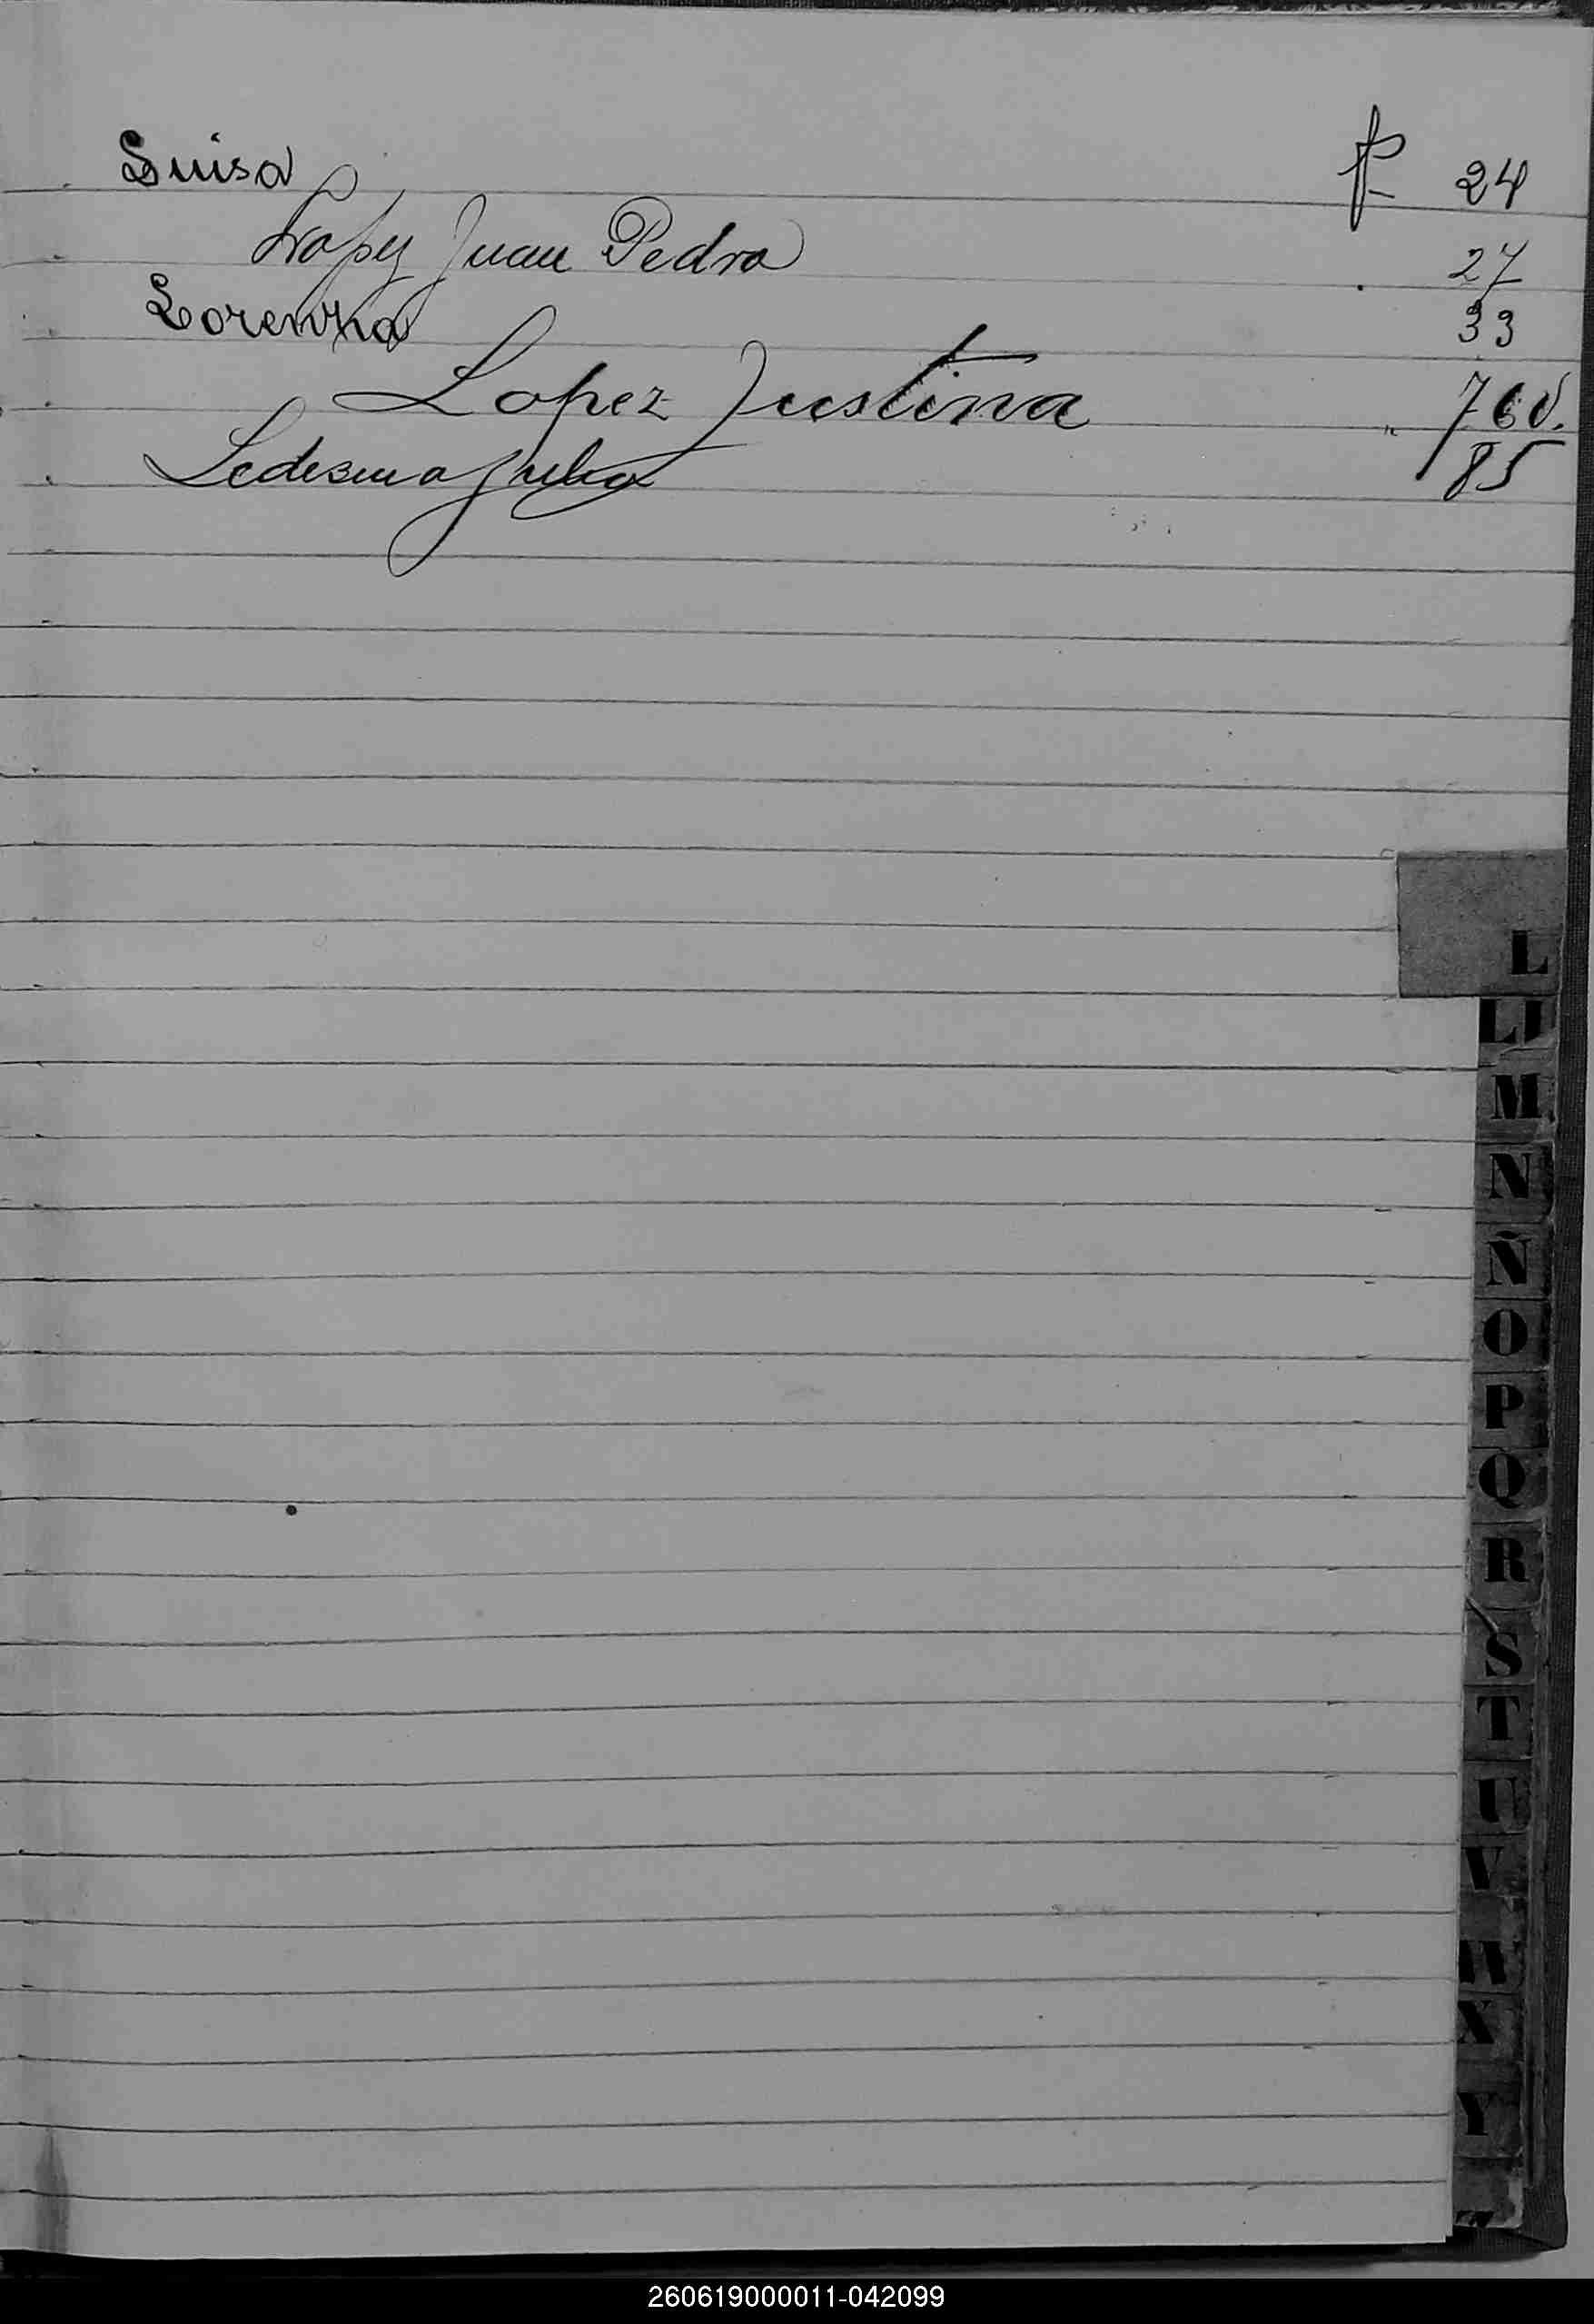 Luisa f 24
Lopez Juan Pedro 27
Lorenza 33
Lopez Justina " 760.
Ledesma Julia 85
L
Ll
M
N
Ñ
O
P
Q
R
S
T
U
V
W
X
Y
260619000011-042099